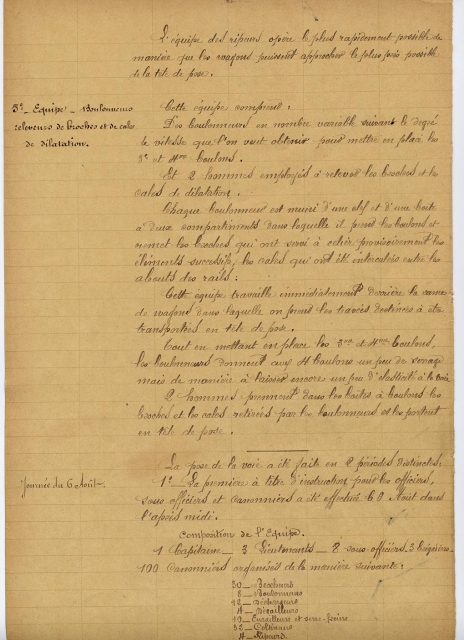 L'équipe des ripeurs opère le plus rapidement possible de
manière que les wagons puissent approcher le plus près possible
de la tête de pose.
3º - Equipe - Boulonneurs
releveurs de broches et de cales
de dilatation.
Cette équipe comprend :
Des boulonneurs en nombre variable suivant le degré
de vitesse que l'on veut obtenir pour mettre en place les
3e et 4me boulons.
Et 2 hommes employés à relever les broches et les
cales de dilatation.
Chaque boulonneur est muni d'une clef et d'une boîte
à deux compartiments dans laquelle il prend les boulons et
remet les broches qui ont servi à relier provisoirement les
éléments successifs, les cales qui ont été intercalées entre les
abouts des rails.
Cette équipe travaille immédiatement derrière la rame
de wagons dans laquelle on prend les travées destinées à être
transportées en tête de pose.
Tout en mettant en place les 3me et 4me boulons,
les boulonneurs donnent aux 4 boulons un peu de serrage
mais de manière à laisser encore un peu d'élasticité à la voie
2 hommes prennent dans les boîtes à boulons les
broches et les cales retirées par les boulonneurs et les portent
en tête de pose.
Journée du 6 Août.
La pose de la voie a été faite en 2 périodes distinctes.
1º La première à titre d'instruction pour les officiers,
sous officiers et canonniers a été effectuée le 6 Août dans
l'après midi.
Composition de l'Equipe.
1 Capitaine - 3 Lieutenants - 8 sous-officiers - 3 brigadiers.
100 Canonniers organisés de la manière suivante :
30 -
8 - Boulonneurs
12 -
4 -
10 -
32 -
4 -